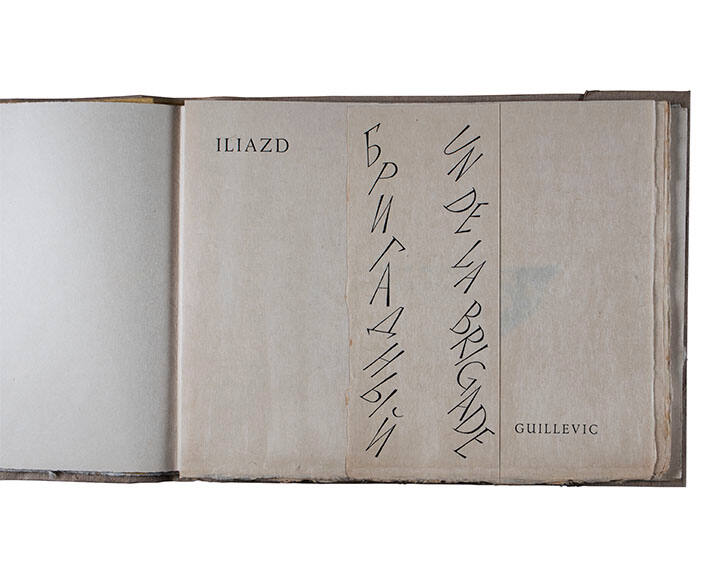 ILIAZD
БРИГАДНЫЙ
UN DE LA BRIGADE
GUILLEVIC